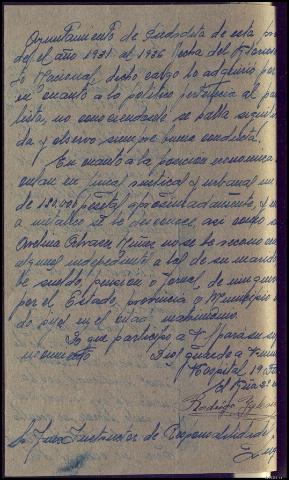 Ayuntamiento de Piedrafita de esta pro
del el año 1931 al 1936 fecha del
to Nacional, dicho cargo lo adquirio por
en cuanto a lo politico pertenecia al par
lista, no conociendosele se halla
da y observo siempre buena conducta.
En cuanto a la posicion economica
en fincas rusticas y urbanas un
de 180.000 pesetas aproximadamente, y en
a se desconoce, asi como su
Alvarez Nuñez no se le reconoce
alguno independiente a los de su marido
be sueldo, pension o jornal, de ningun
por el Estado, provincia o Municipio
do en el citado matrimonio.
Lo que participo a V. para su
conocimiento Dios guarde a V. m
Hospital 19
El Guia 2º
Rodrigo
Sr Juez Instructor de Responsabilidades
Lugo